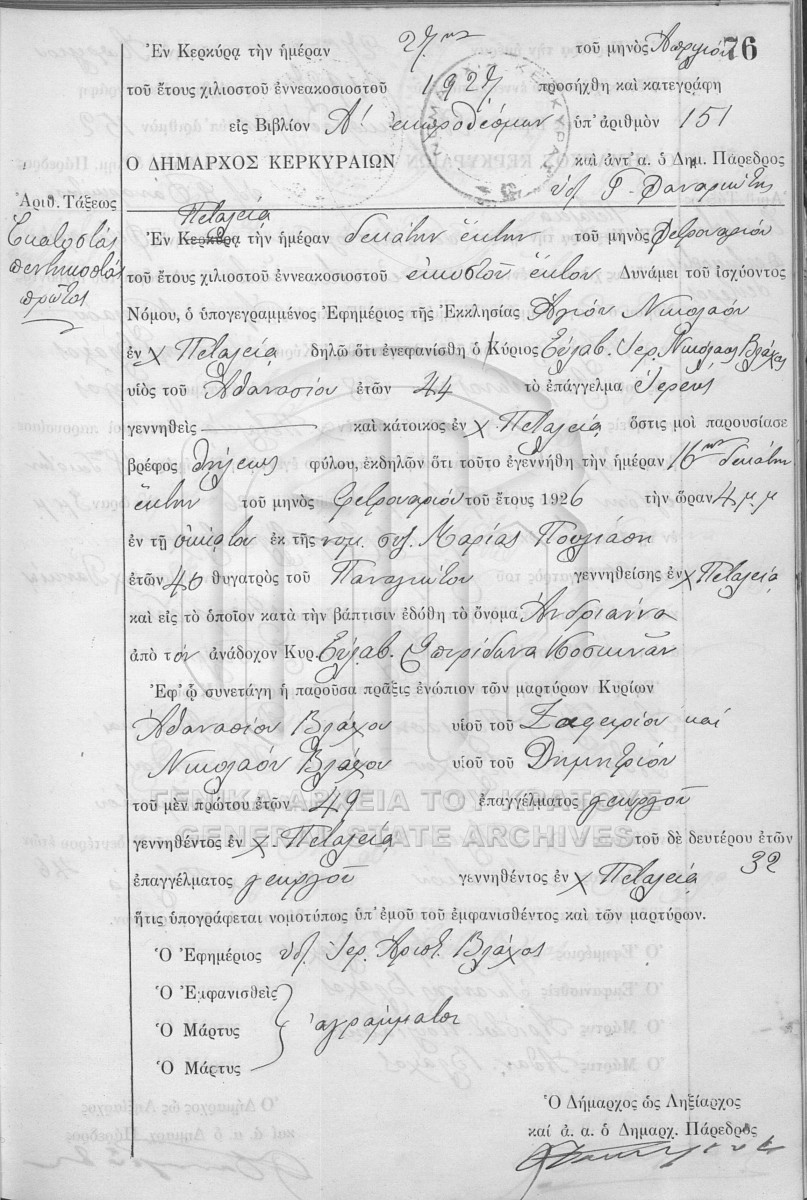 76
Ἐν Κερκύρᾳ τὴν ἡμέραν 27ην τοῦ μηνὸς Ἀπριλίου
τοῦ ἔτους χιλιοστοῦ ἐννεακοσιοστοῦ 1927 προσήχθη καὶ κατεγράφη
εἰς Βιβλίον Α' ἐκπροθέσμων ὑπ' ἀριθμὸν 151
Ο ΔΗΜΑΡΧΟΣ ΚΕΡΚΥΡΑΙΩΝ καὶ ἀντ' α. ὁ Δημ. Πάρεδρος
Ἀριθ. Τάξεως
Ἑκατοστὸς
πεντηκοστὸς
πρῶτος
Πεταλείᾳ
Ἐν Κερκύρᾳ τὴν ἡμέραν δεκάτην ἕκτην τοῦ μηνὸς Φεβρουαρίου
τοῦ ἔτους χιλιοστοῦ ἐννεακοσιοστοῦ εἰκοστοῦ ἕκτου Δυνάμει τοῦ ἰσχύοντος
Νόμου, ὁ ὑπογεγραμμένος Ἐφημέριος τῆς Ἐκκλησίας Ἁγίου Νικολάου
ἐν χ Πεταλείᾳ δηλῶ ὅτι ἐνεφανίσθη ὁ Κύριος Εὐλαβ. Ἱερ. Νικόλαος Βλάχος
υἱὸς τοῦ Ἀθανασίου ἐτῶν 44 τὸ ἐπάγγελμα Ἱερεὺς
γεννηθεὶς καὶ κάτοικος ἐν χ Πεταλείᾳ ὅστις μοὶ παρουσίασε
βρέφος θήλεως φύλου, ἐκδηλῶν ὅτι τοῦτο ἐγεννήθη τὴν ἡμέραν 16ην δεκάτην
ἕκτην τοῦ μηνὸς Φεβρουαρίου τοῦ ἔτους 1926 τὴν ὥραν 4 μ.μ
ἐν τῇ οἰκίᾳ του ἐκ τῆς νομ. συζ. Μαρίας Πουλιάση
ἐτῶν 40 θυγατρὸς τοῦ Παναγιώτου γεννηθείσης ἐν χ Πεταλείᾳ
καὶ εἰς τὸ ὁποῖον κατὰ τὴν βάπτισιν ἐδόθη τὸ ὄνομα Ἀνδριάννα
ἀπὸ τὸν ἀνάδοχον Κυρ. Εὐλαβ. Σπυρίδωνα Κοσκινᾶν
Ἐφ' ᾧ συνετάγη ἡ παροῦσα πρᾶξις ἐνώπιον τῶν μαρτύρων Κυρίων
Ἀθανασίου Βλάχου υἱοῦ τοῦ Ζαφειρίου καὶ
Νικολάου Βλάχου υἱοῦ τοῦ Δημητρίου
τοῦ μὲν πρώτου ἐτῶν 49 ἐπαγγέλματος γεωργοῦ
ΓΕΝΙΚΑ ΑΡΧΕΙΑ ΤΟΥ ΚΡΑΤΟΥΣ
GENERAL STATE ARCHIVES
γεννηθέντος ἐν χ. Πεταλείᾳ τοῦ δὲ δευτέρου ἐτῶν 32
ἐπαγγέλματος γεωργοῦ γεννηθέντος ἐν χ Πεταλείᾳ
ἥτις ὑπογράφεται νομοτύπως ὑπ' ἐμοῦ τοῦ ἐμφανισθέντος καὶ τῶν μαρτύρων.
Ὁ Ἐφημέριος υπ. Ἱερ. Ἀριστ. Βλάχος
Ὁ Ἐμφανισθεὶς
Ὁ Μάρτυς ἀγράμματοι
Ὁ Μάρτυς
Ὁ Δήμαρχος ὡς Ληξίαρχος
καὶ ἀ. α. ὁ Δημαρχ. Πάρεδρος